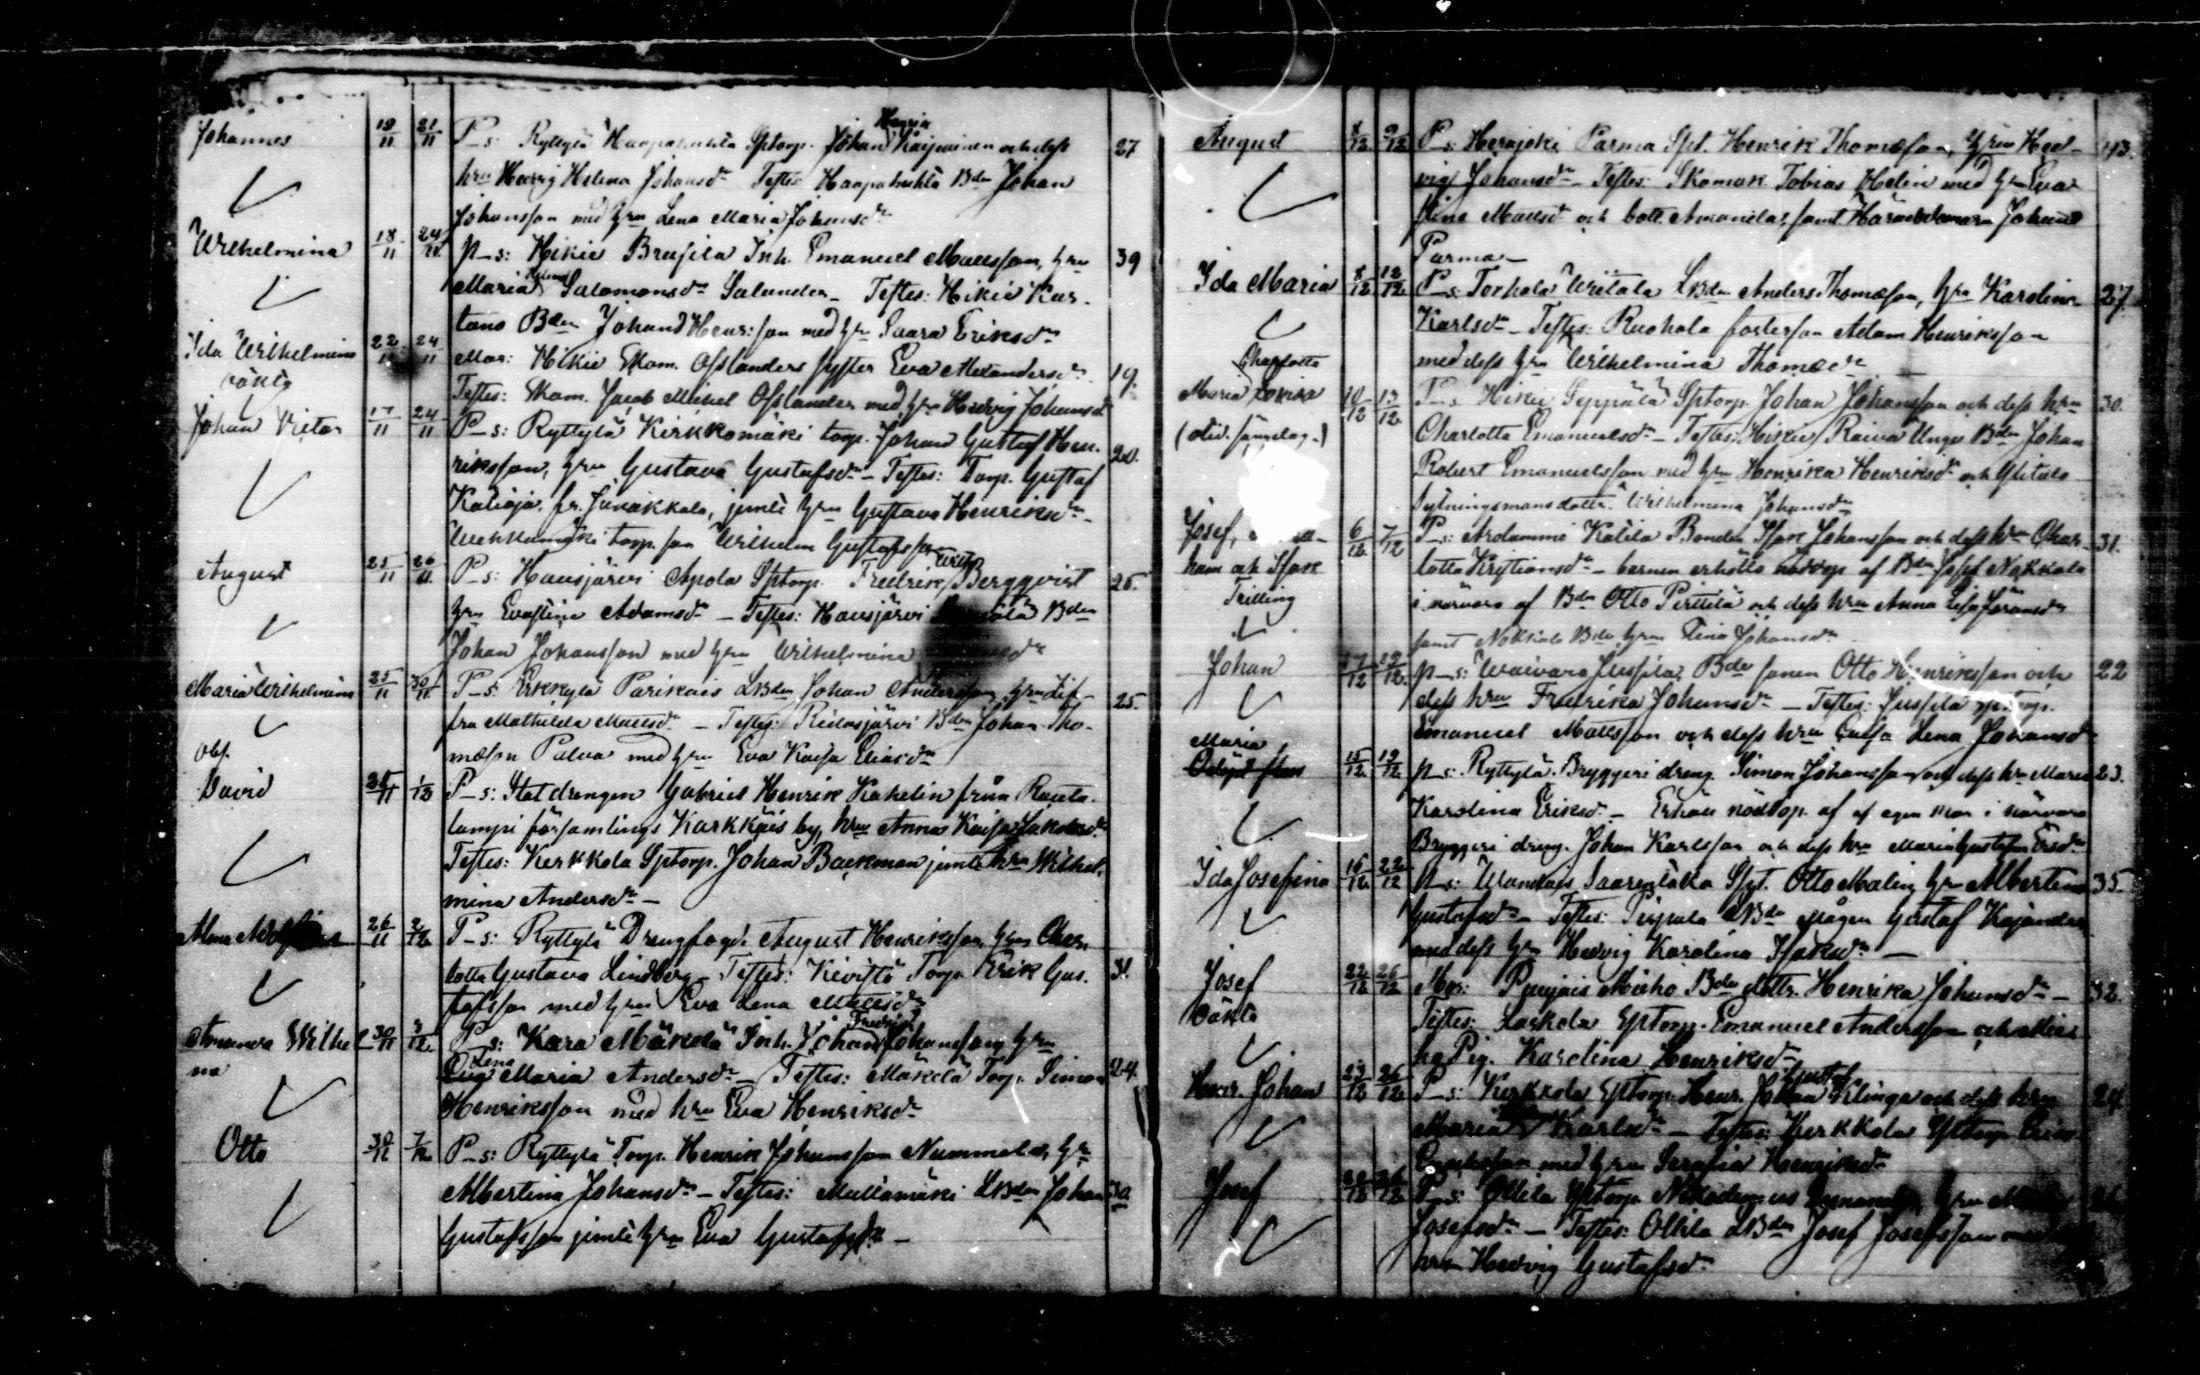 Johannes 19/11 21/11 P_s: Ryttylä Haapahuhta Sptorp. Johan Henrik och dess 27
hru Hedvig Helena Johansdr Testes: Haapahuhta Bdn Johan
Johansson med hru Lena Maria Johansdr
Wilhelmina 18/11 24/11 P_s: Hikiä Inh. Emanuel Mattsson, hru 39
Maria Helena Salomonsdr Salander_ Testes: Hikiä Kur-
tano Bdn Johan Henr:son med hru Saara Eriksdr
Ida Wilhelmina 22/11 24/11 Mar: Hikiä Skom. Osslanders syster Eva Alexandersdr 19.
oäkta Testes: Skom. Jacob Mikel Osslander med hru Hedvig Johansdr
Johan Victor 17/11 24/11 P_s: Ryttylä Kirkkomäki torp. Johan Gustaf Hen- 20.
riksson, hru Gustava Gustafsdr _ Testes: Torp. Gustaf
Kalioja fr. Janakkala, jemte hru Gustava Henriksdr
torp. son Wilhelm Gustafsson
August 25/11 26/11 P_s: Hausjärvi Apola Sptorp. Fredrik Bergqvist 25.
hru Evastina Adamsdr _ Testes: Hausjärvi Bdn
Johan Johansson med hru Wilhelmina
Maria Wilhelmina 25/11 30/11 P_s: Erkkylä Parikais LBdn Johan Andersson, hru Lis- 25.
fra Mathilda Mattsdr _ Testes: Ridasjärvi Bdn Johan Tho-
mæson Palva med hru Eva Kaisa Eliasdr
obs.
David 28/11 1/12 P_s: Statdrengen Gabriel Henrik Kahelin från Rauta-
lampi församlings Karkkäis by, hru Anna Kaisa Jakobsdr
Testes: Kerkkola Sptorp. Johan Backman jemte hru Wilhel-
mina Andersdr _
Alma 26/11 2/12 P_s: Ryttylä Drengfogd. August Henriksson, hru Char- 31.
lotta Gustava Lindberg _ Testes: Kivistö Torp. Erik Gus-
tafsson med hru Eva Lena Mattsdr
Amanda Wilhelmi- 30/11 3/12 P_s: Kara Mäkelä Inh. Johan Fredrik Johansson, hru
na Lena Maria Andersdr _ Testes: Mäkelä Torp. Simon 24.
Henriksson med hru Eva Henriksdr
Otto 30/11 7/12 P_s: Ryttylä Torp. Henrik Johansson Nummela, hru
Albertina Johansdr _ Testes: Mullamäki LBdn Johan 30.
Gustafsson jemte hru Eva Gustafsdr _
August 8/12 9/12 P_s: Herajoki Parma Spt. Henrik Thomæson, hru Hed- 43.
vig Johansdr _ Testes: Skomak Tobias Helin med hru Eva
Stina Mattsd och dott. Amanda, samt Häradsdomaren Johan
Parma _
Ida Maria 8/12 12/12 P_s: Torhola Wiitala LBdn Anders Thomæson, hru Karolina 27.
Karlsdr _ Testes: Ruohola fosterson Adam Henriksson
med dess hru Wilhelmina Thomædr
Charlotta
Maria Lovisa 10/12 13/12 P_s: Hikiä Seppälä Sptorp. Johan Johansson och dess hru 30.
Charlotta Emanuelsdr _ Testes: Hikiä Raiva Unga Bdn Johan
Robert Emanuelsson med hru Henrika Henriksdr och Ylitalo
sytningsmansdotter Wilhelmina Johansdr
Josef, 6/12 7/12 P_s: Arolammi Katila Bonden Isak Johansson och dess hru Char- 31.
ham och Isak lotta Kristiansdr _ barnen erhöllo nöddop af Bdn Josef Nokkala
Trilling i närvaro af Bdn Otto Pirttilä och dess hru Anna Lisa
samt Nokkala Bdn hru Stina Johansdr
Johan 17/12 19/12 P_s: Waivara Jussila Bde sonen Otto Henriksson och 22
dess hru Fredrika Johansdr _ Testes: Jussila sptorp.
Emanuel Mattsson och dess hru Caisa Lena Johansdr
Maria 15/12 19/12 P_s. Ryttylä Bryggeri dreng. Simon Johansson och dess hru Maria 23.
Karolina Eriksdr _ Erhöll nöddop af af egen mor i närvaro
Bryggeri dreng. Johan Karlsson och dess hru Maria Gustafva Ersdr
Ida Josefina 16/12 22/12 P_s: Saarenlaka Spt. Otto Malin, hru Albertina 35.
Gustafsdr _ Testes: LBdn mågen Gustaf Kajander
med dess hru Hedvig Karolina Isaksdr _
Josef 22/12 26/12 Mor: Punjais Mieho Bde dottr. Henrika Johansdr _ 32.
Oäkta Testes: Laskela Sptorp. Emanuel Andersson och Mie-
ho Pig. Karolina Henriksdr
Henr. Johan 23/12 26/12 P_s: Kerkkola Sptorp. Henr. Johan Gustaf Klinga och dess hru 24.
Maria Karlsdr _ Testes: Kerkkola Sptorp. Erik
Eriksson med hru Serafia Henriksdr
Josef 26/12 P_s: Ollila Sptorp. Nikodemus hru
Josefsdr _ Testes: Ollila LBdn Josef Josefsson med
hru Hedvig Gustafsdr